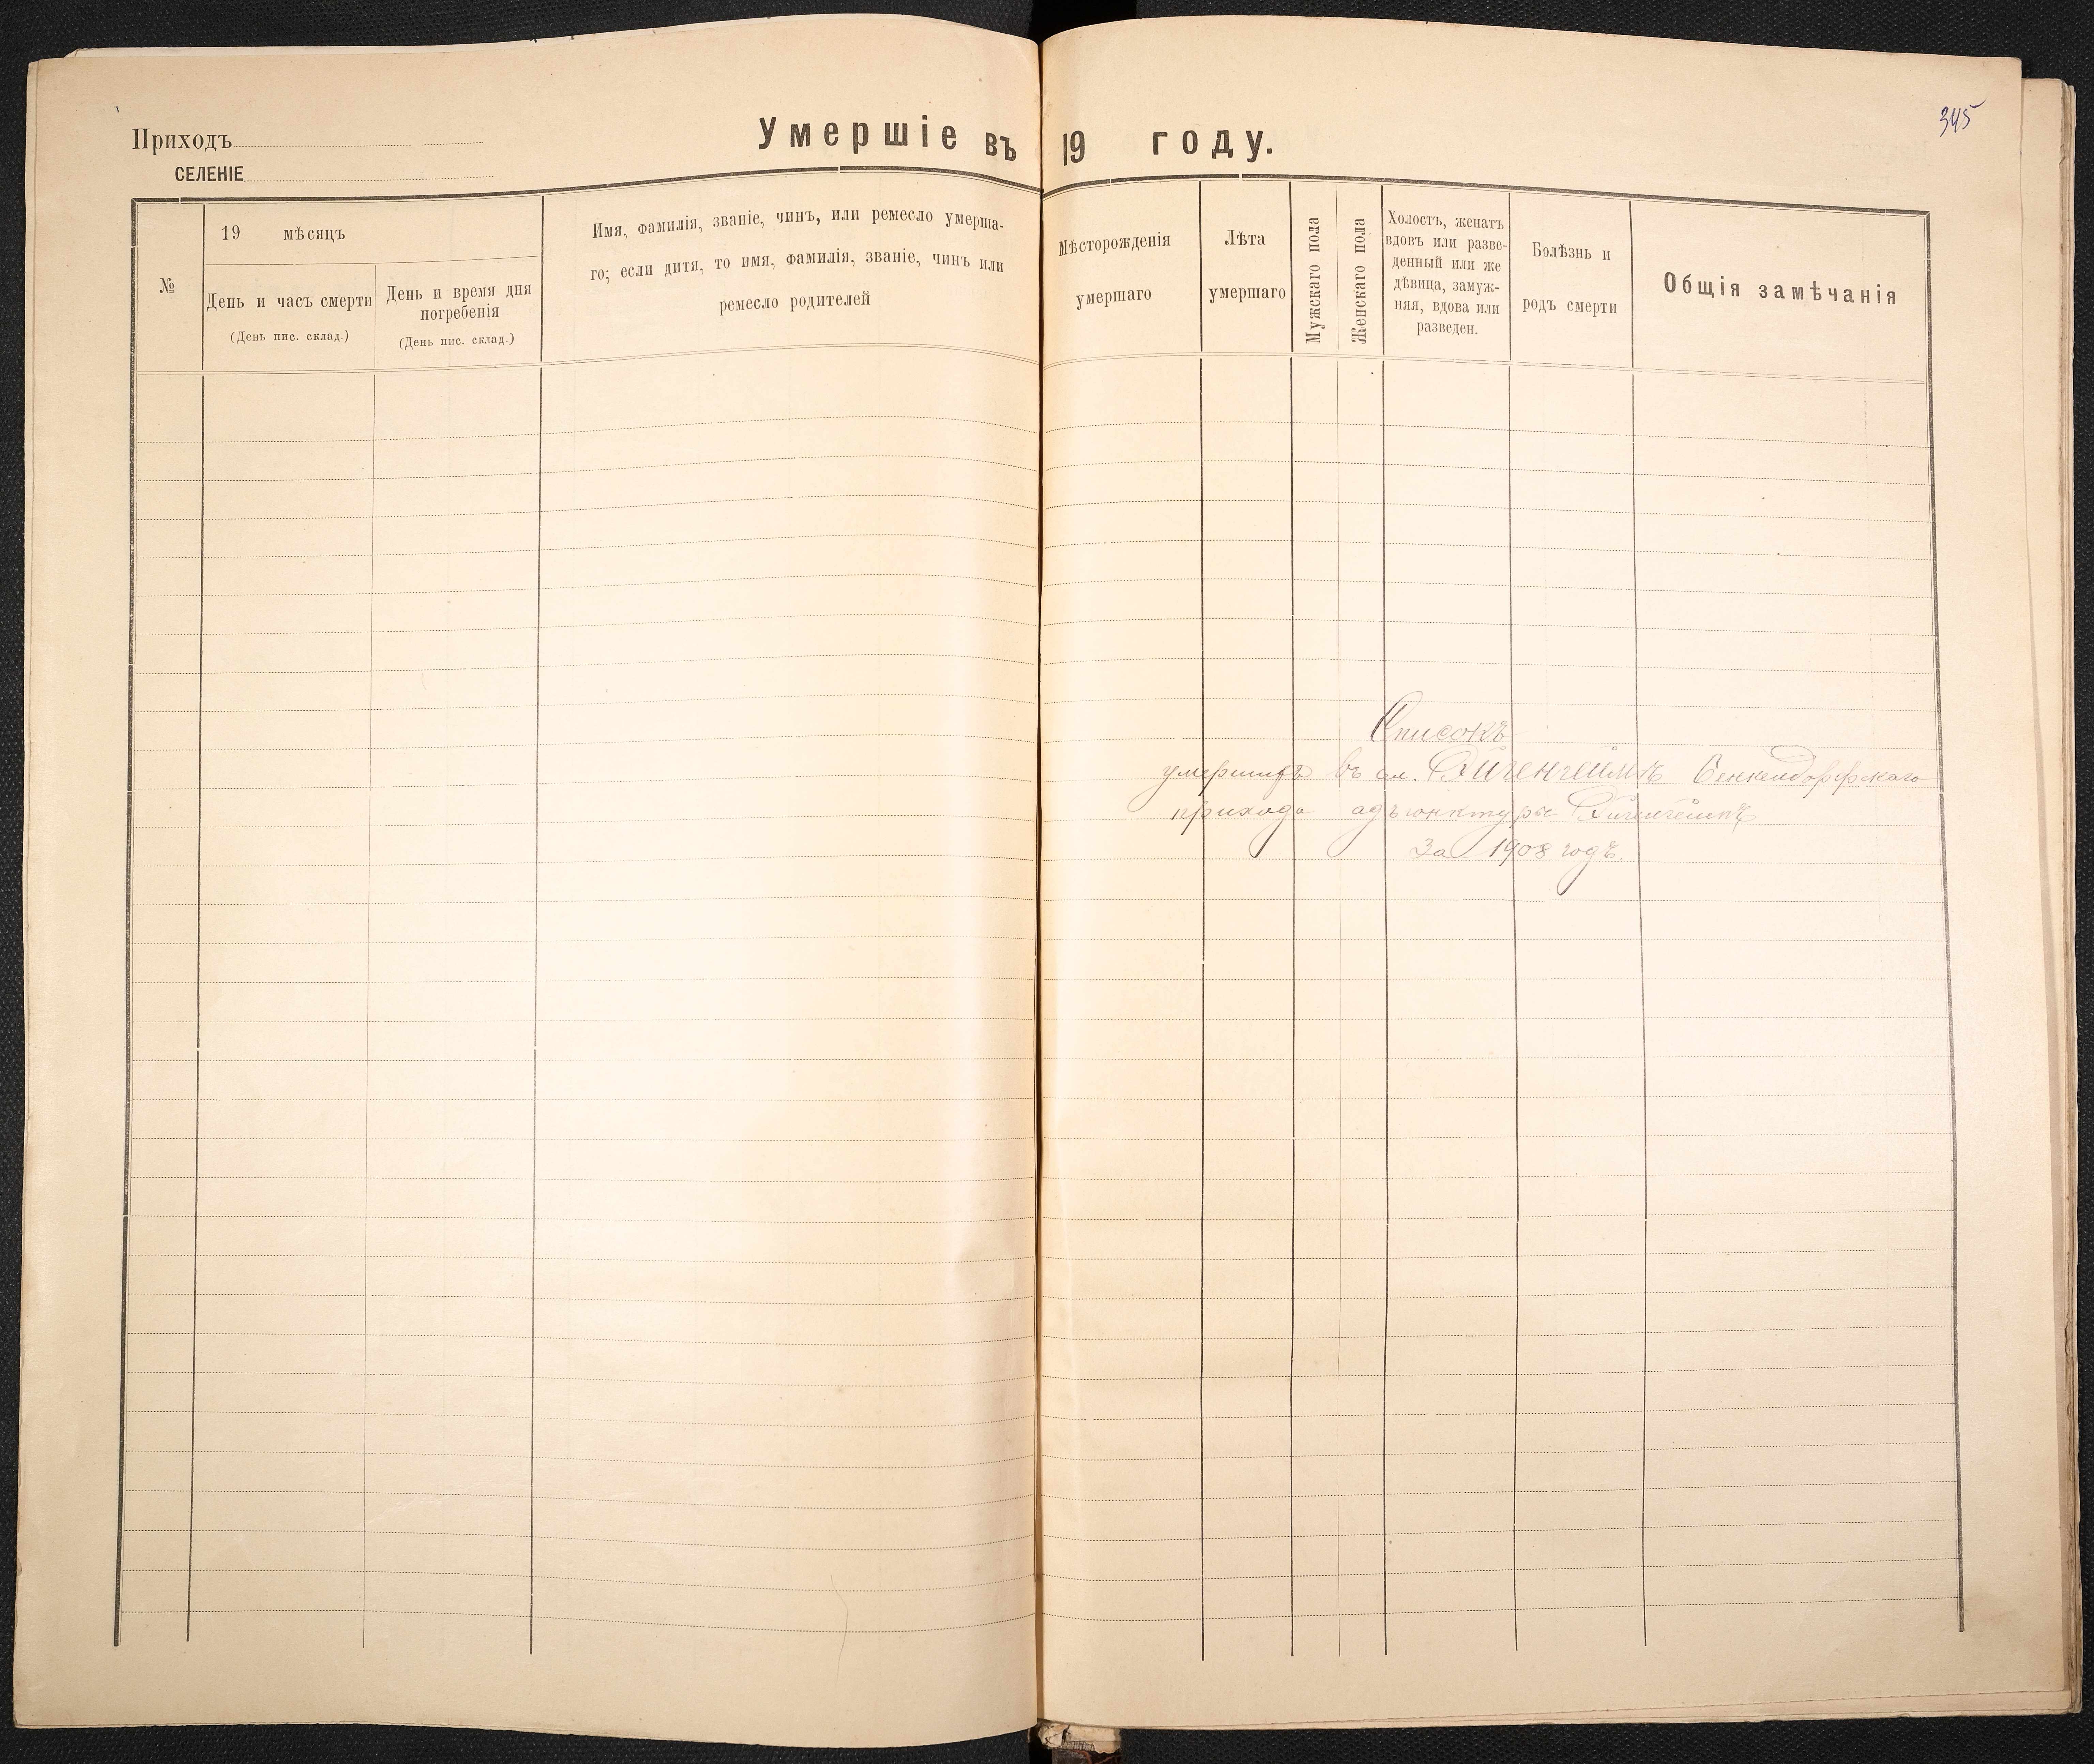 345
Умершіе въ 19 году.
Приходъ
СЕЛЕНІЕ
№
19 мѣсяцъ
День и часъ смерти
(День пис. склад.)
День и время дня
погребенія
(День пис. склад.)
Имя, фамилія, званіе, чинъ, или ремесло умерша-
го; если дитя, то имя, фамилія, званіе, чинъ или
ремесло родителей
Мѣсторожденія
умершаго
Лѣта
умершаго
Мужскаго пола
Женскаго пола
Холостъ, женатъ
вдовъ или разве-
денный или же
дѣвица, замуж-
няя, вдова или
разведен.
Болѣзнь и
родъ смерти
Общія замѣчанія
Списокъ
умершихъ въ сл. Бенкендорфскаго
прихода адъюнктуры
За 1908 годъ.